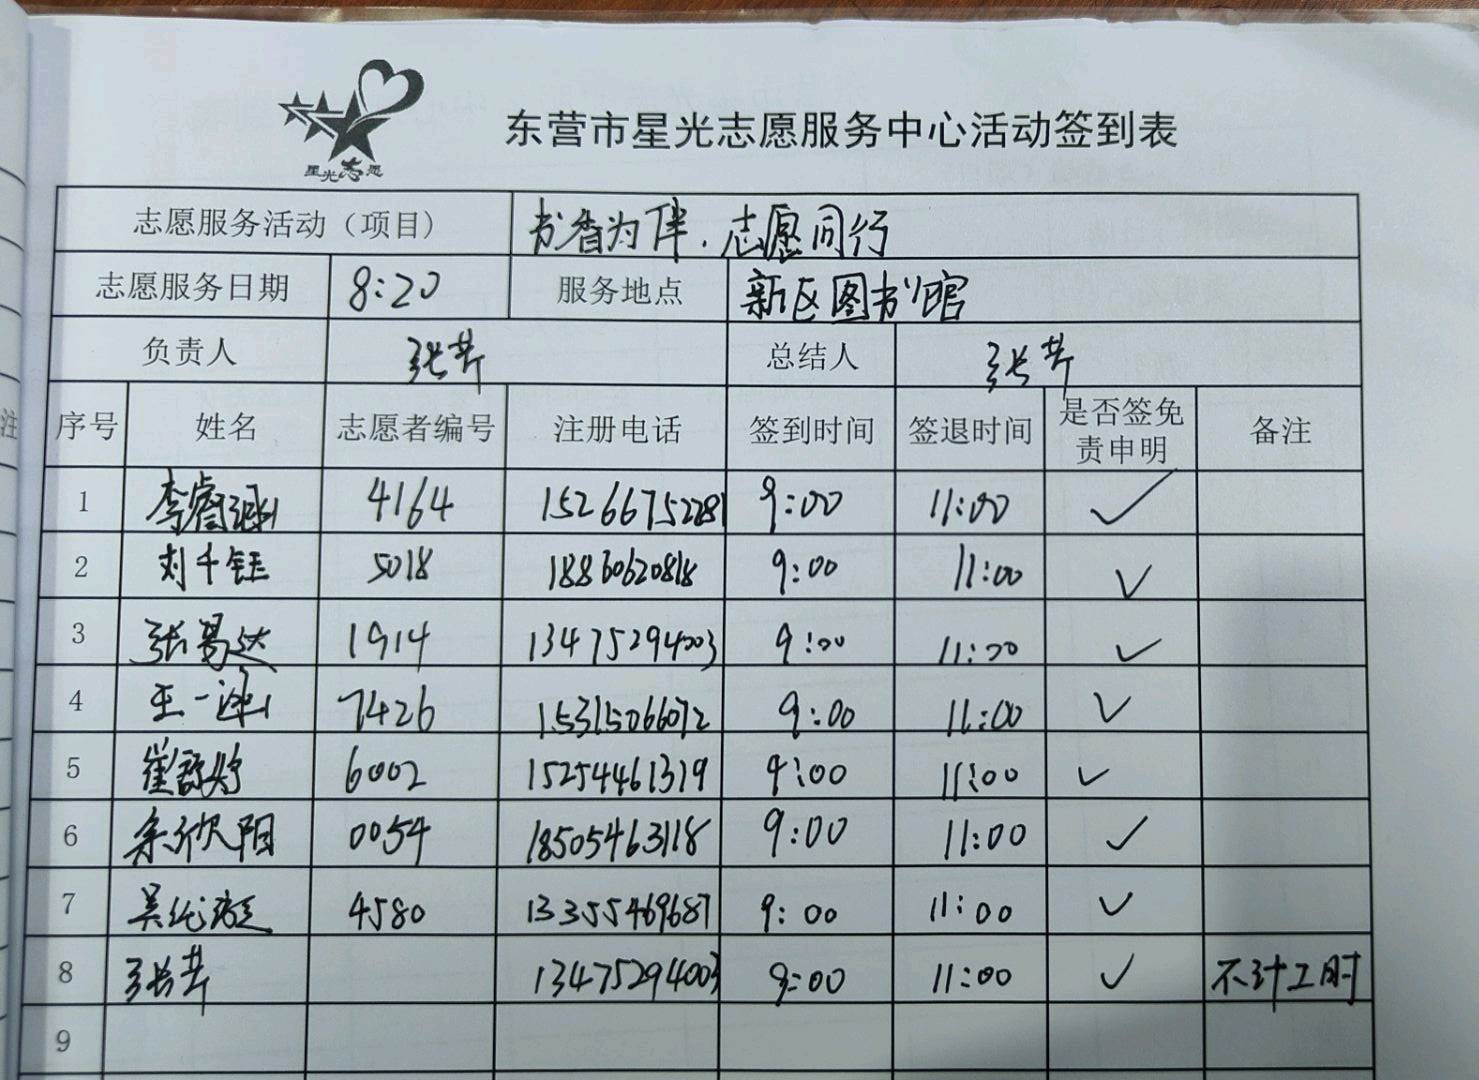 星光志愿
东营市星光志愿服务中心活动签到表
志愿服务活动（项目） 书香为伴，志愿同行
志愿服务日期 8:20 服务地点 新区图书馆
负责人 张芹 总结人 张芹
序号 姓名 志愿者编号 注册电话 签到时间 签退时间 是否签免责申明 备注
1 李睿涵 4164 15266752281 9:00 11:00 ✓
2 刘千钰 5018 18860620818 9:00 11:00 ✓
3 张易达 1914 13475294003 9:00 11:00 ✓
4 王一涵 7426 15315066072 9:00 11:00 ✓
5 崔舒婷 6002 15254461319 9:00 11:00 ✓
6 余欣阳 0054 18505463118 9:00 11:00 ✓
7 吴 4580 13355469687 9:00 11:00 ✓
8 张芹 13475294003 9:00 11:00 ✓ 不计工时
9
注